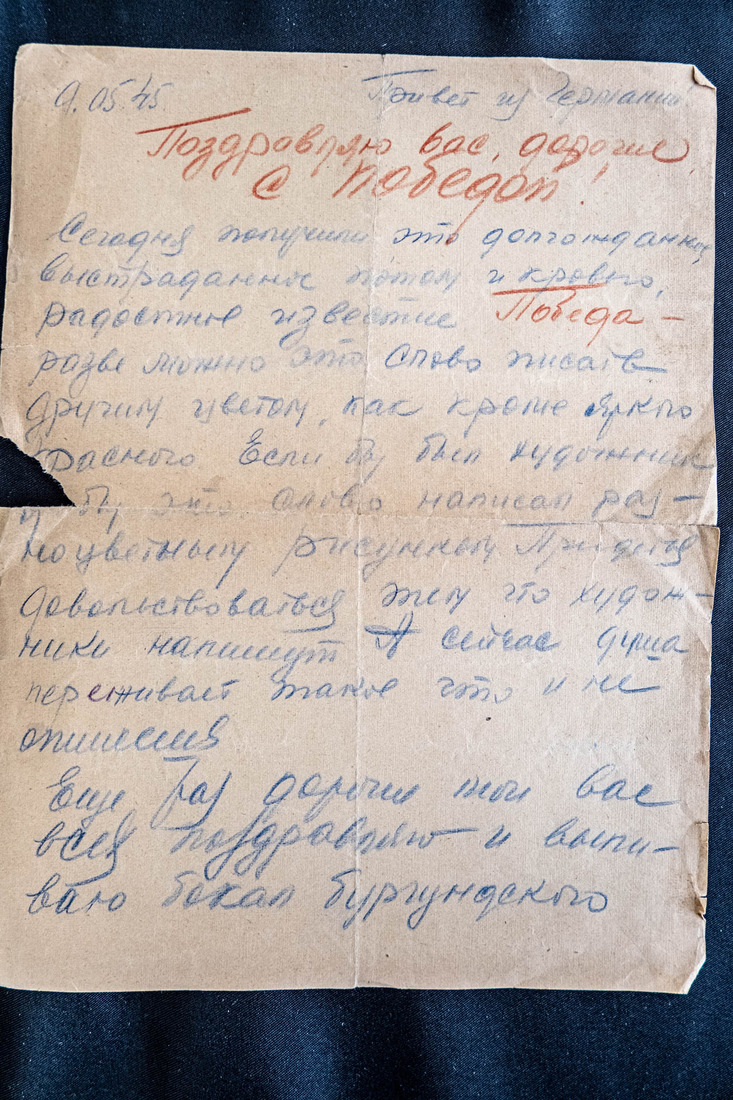 9.05.45. Привет из Германии
Поздравляю вас, дорогие,
с победой!
Сегодня получили это долгожданное,
выстраданное потом и кровью,
радостное известие Победа –
разве можно это слово писать
другим цветом, как кроме яркого
красного. Если бы был художник
я бы это слово написал раз-
ноцветным рисунком. Придется
довольствоваться тем что худож-
ники напишут А сейчас душа
переживает такое что и не
опишешь
Еще раз дорогие мои вас
всех поздравляю и выпи-
ваю бокал бургундского